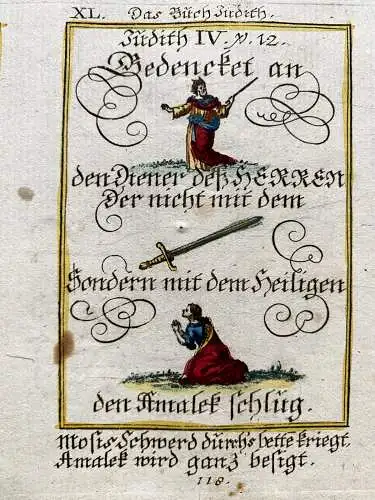 XL. Das Büch Judith.
Judith IV. v. 12.
Gedencket an
den Diener deß HERREN
Der nicht mit dem
Sondern mit dem Heiligen
den Amalek schlüg.
Mosis Schwerd dürchs bette kriegt.
Amalek wird ganz besigt.
118.